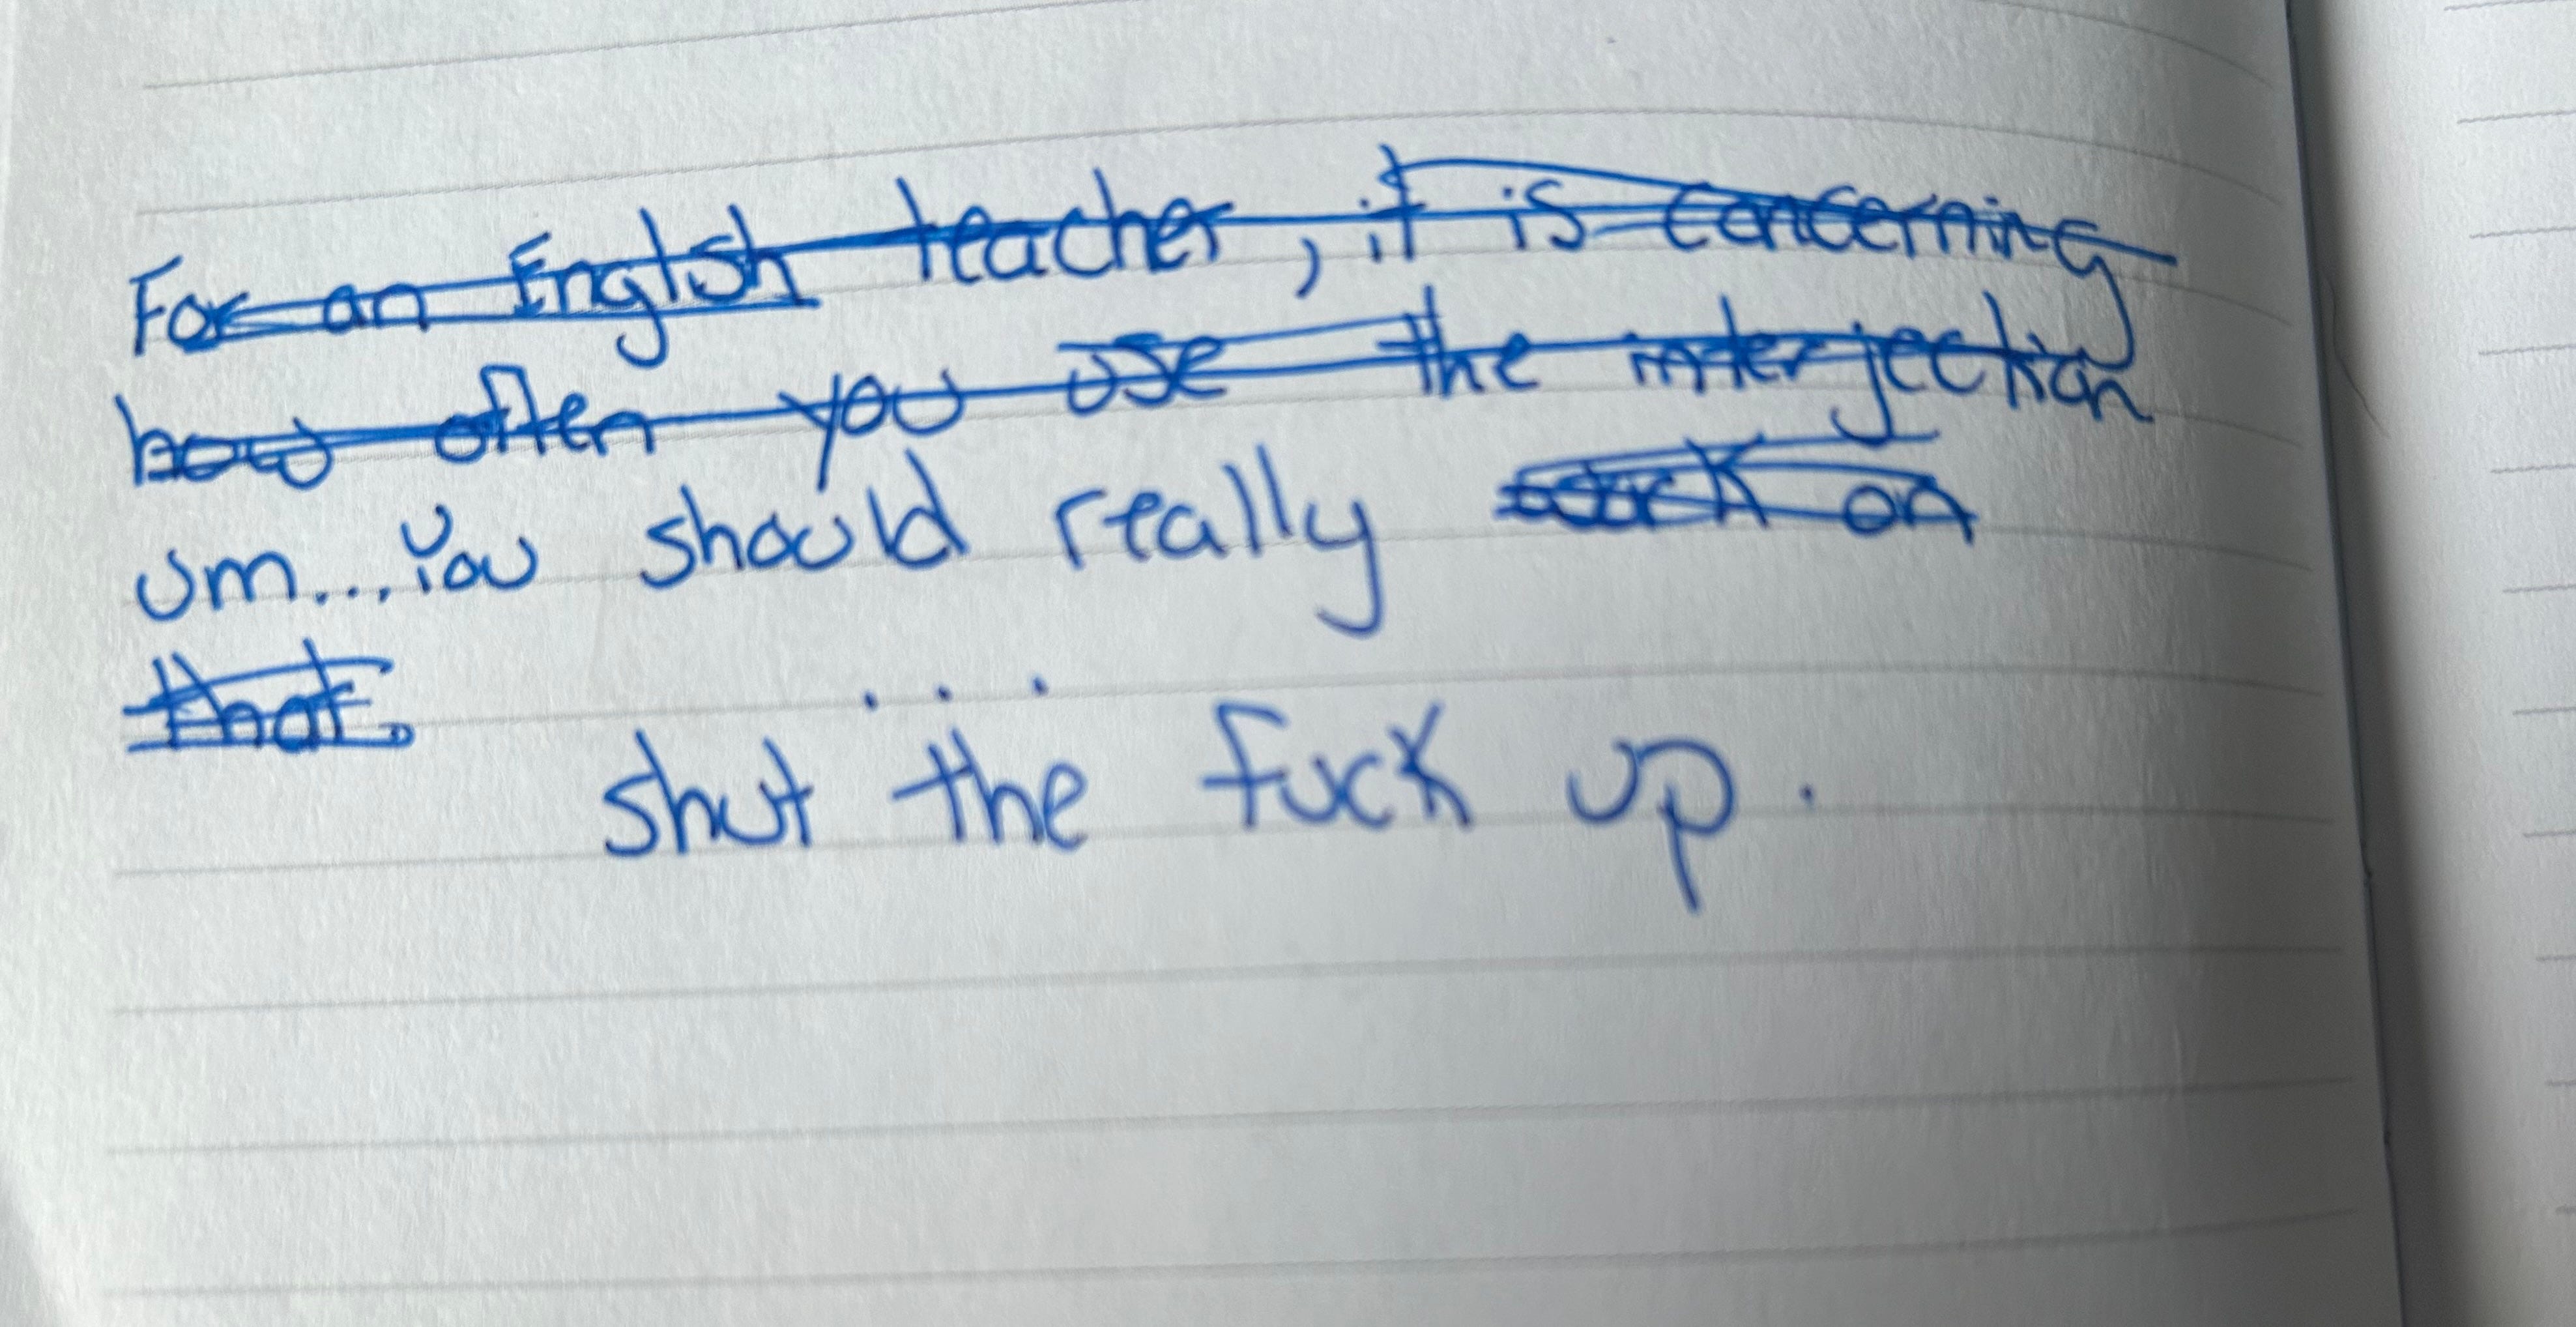 For an English teacher, it is concerning
how often you use the interjection
um...You should really work on
that.
...
shut the fuck up.